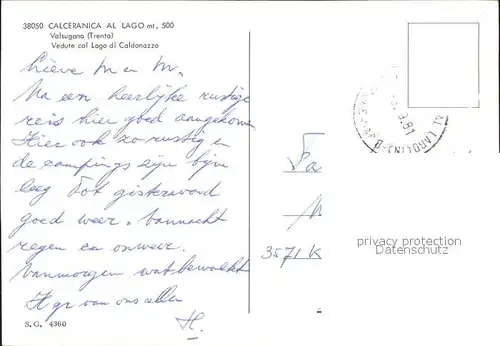 38050 CALCERANICA AL LAGO mt. 500
Valsugana (Trento)
Vedute col Lago di Caldonazzo
Lieve M en M.
Na een heerlijke rustige
reis hier goed aangekomen
Hier ook zo rustig en
de campings zijn bijna
leeg Tot gisteravond
goed weer. Vannacht
regen en onweer.
Vanmorgen wat bewolkt
H gr van ons allen
H.
S. G. 4360
9.81
AL LAGO
3571 K
privacy protection
Datenschutz